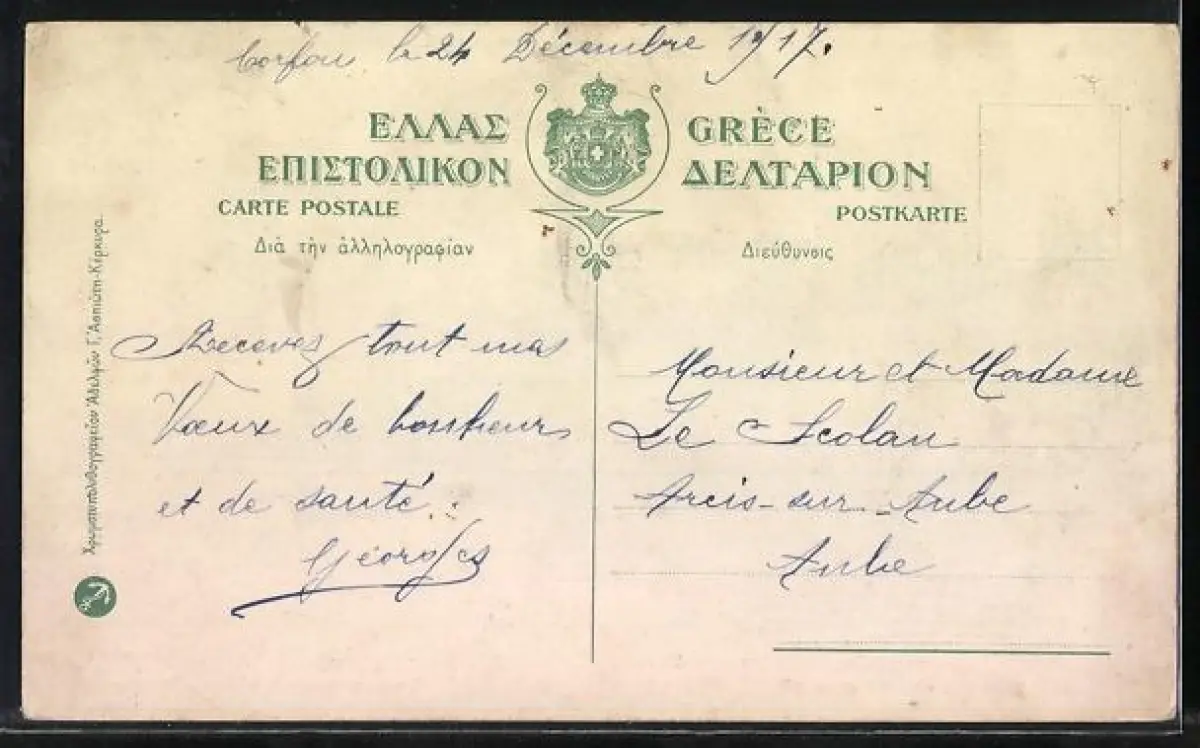 Corfou le 24 Décembre 1917.
ΕΛΛΑΣ GRÈCE
ΕΠΙΣΤΟΛΙΚΟΝ ΔΕΛΤΑΡΙΟΝ
CARTE POSTALE POSTKARTE
Διὰ τὴν ἀλληλογραφίαν Διεύθυνσις
Χρωματοτυπολιθογραφεῖον Ἀδελφῶν Γ. Ἀσπιώτη-Κέρκυρα.
Recevez tout mes
Vœux de bonheurs
et de santé.
Georges
Monsieur et Madame
Le Scolan
Arcis-sur-Aube
Aube